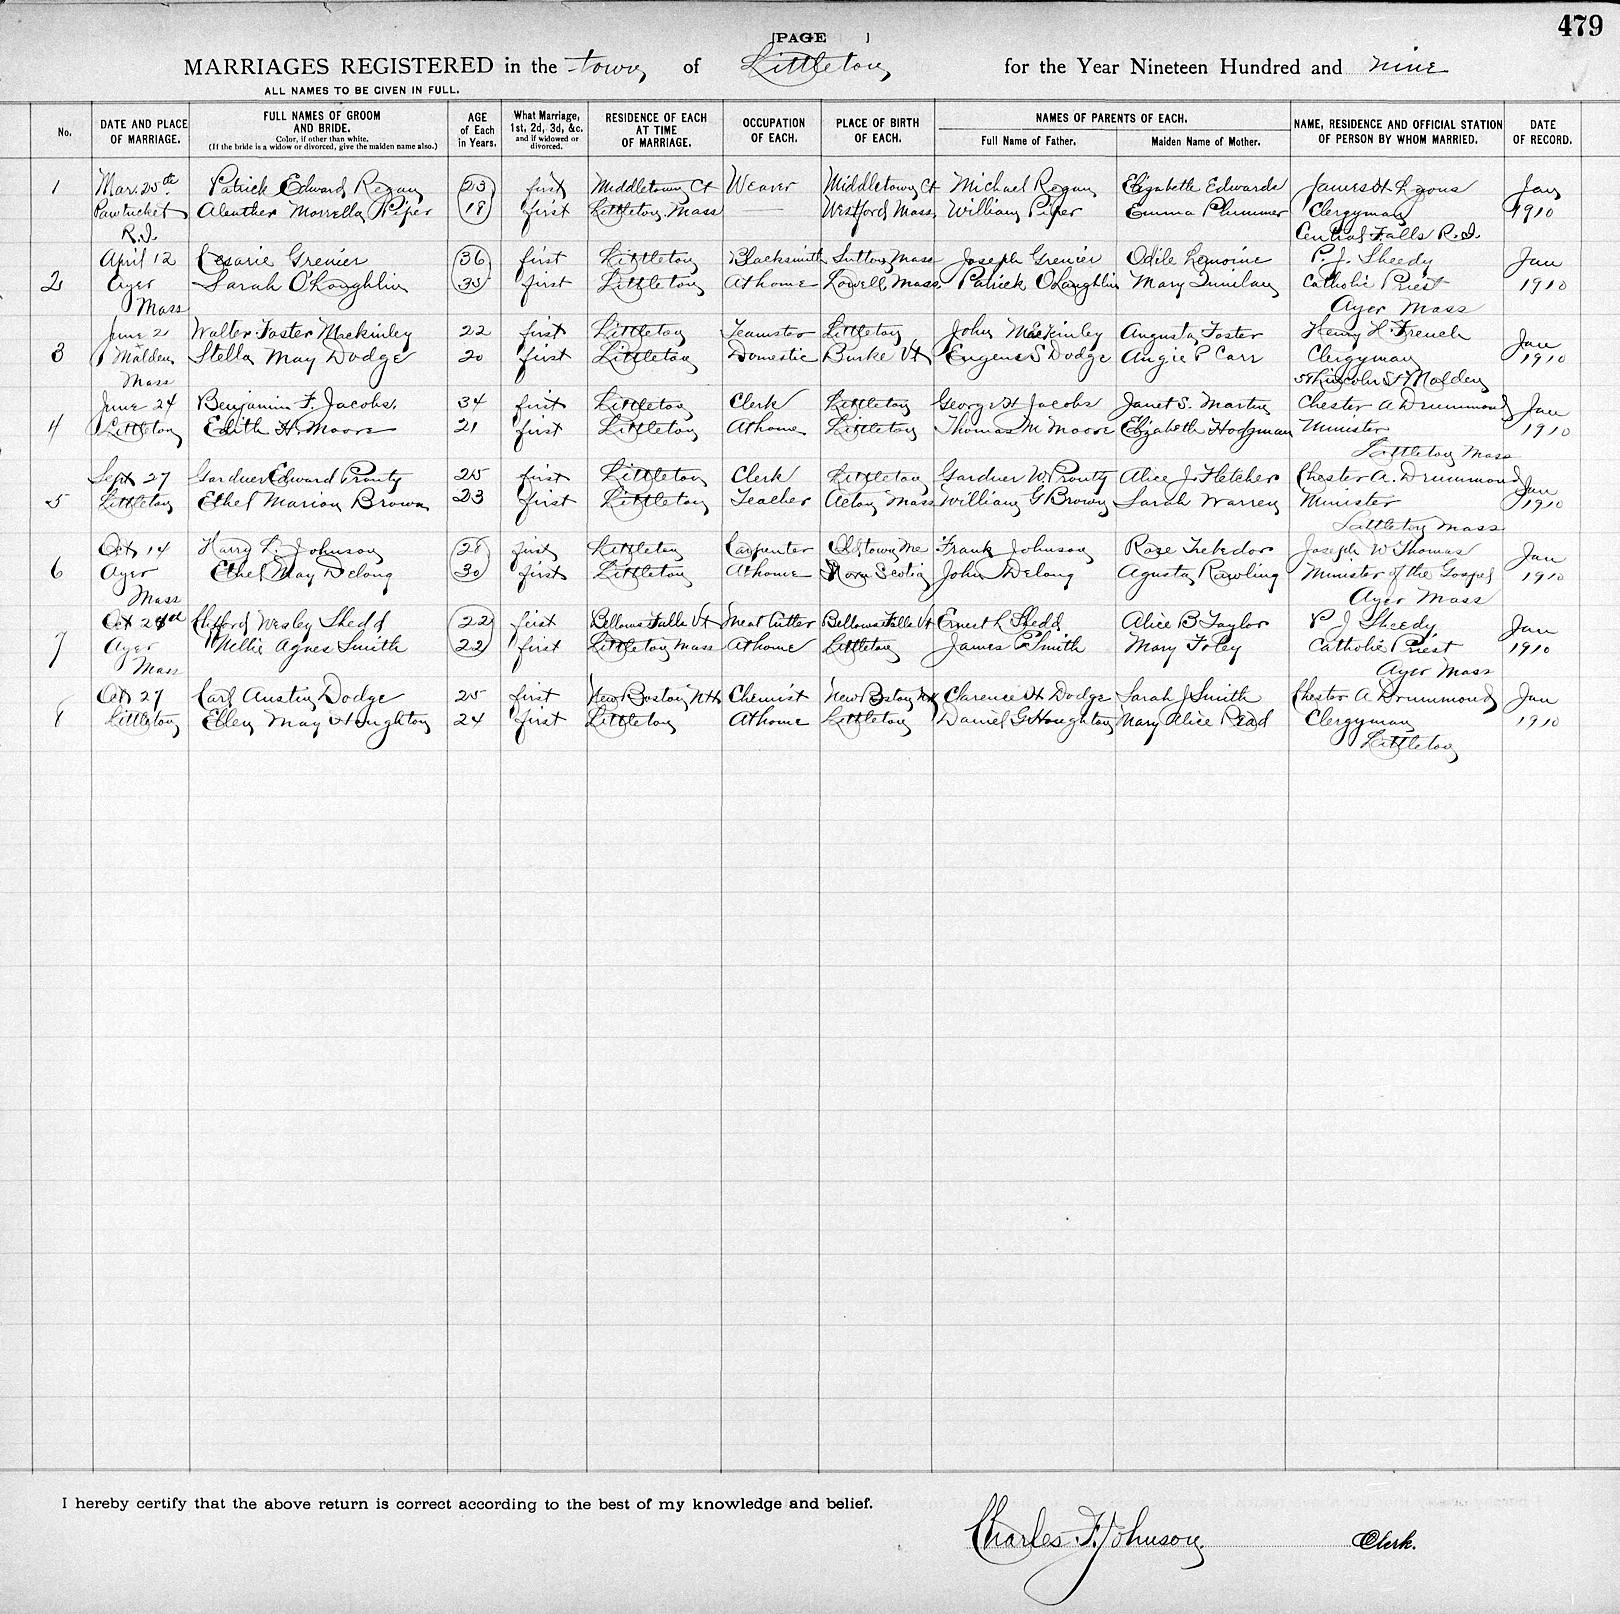 479
[PAGE ]
MARRIAGES REGISTERED in the town of Littleton for the Year Nineteen Hundred and nine
ALL NAMES TO BE GIVEN IN FULL.
No. DATE AND PLACE OF MARRIAGE. FULL NAMES OF GROOM AND BRIDE. Color, if other than white. (If the bride is a widow or divorced, give the maiden name also.) AGE of Each in Years. What Marriage, 1st, 2d, 3d, &c. and if widowed or divorced. RESIDENCE OF EACH AT TIME OF MARRIAGE. OCCUPATION OF EACH. PLACE OF BIRTH OF EACH. NAMES OF PARENTS OF EACH. Full Name of Father. Maiden Name of Mother. NAME, RESIDENCE AND OFFICIAL STATION OF PERSON BY WHOM MARRIED. DATE OF RECORD.
1 Mar. 25th Patrick Edward Regan 23 first Middletown Ct Weaver Middletown Ct Michael Regan Elizabeth Edwards James H. Lyons Jan
Pawtucket Morrella Piper first Littleton Mass — Westford Mass. William Piper Emma Plummer Clergyman 1910
R.I. Central Falls R.I.
April 12 Cesarie Grenier 36 first Littleton Blacksmith Sutton Mass Joseph Grenier Odile Lemoine P. J. Sheedy Jan
2 Ayer Sarah O'Loughlin 35 first Littleton At home Lowell Mass. Patrick O'Laughlin Mary Catholic Priest 1910
Mass Ayer Mass
June 21 Walter Foster MacKinley 22 first Littleton Teamster Littleton John MacKinley Augusta Foster Henry H. French Jan
3 Malden Stella May Dodge 20 first Littleton Domestic Burke Vt Eugene S Dodge Angie P Carr Clergyman 1910
Mass Lincoln St Malden
June 24 Benjamin F. Jacobs. 34 first Littleton Clerk Littleton George H Jacobs Janet S. Martin Chester A Drummond Jan
4 Littleton Edith H. Moore 21 first Littleton At home Littleton Thomas M Moore Elizabeth Hodgman Minister 1910
Littleton Mass
Sept 27 Gardner Edward Prouty 25 first Littleton Clerk Littleton Gardner W. Prouty Alice J. Fletcher Chester A. Drummond Jan
5 Littleton Ethel Marion Brown 23 first Littleton Teacher Acton Mass William G Brown Sarah Warren Minister 1910
Littleton Mass
Oct 14 Harry L. Johnson 28 first Littleton Carpenter Oldtown Me Frank Johnson Rose Joseph W Thomas Jan
6 Ayer Ethel May Delong 30 first Littleton At home Nova Scotia John Delong Agusta Rawling Minister of the Gospel 1910
Mass Ayer Mass
Oct Clifford Wesley Shedd 22 first Bellows Falls Vt Meat Cutter Bellows Falls Vt Ernest L Shedd Alice B Taylor P J Sheedy Jan
7 Ayer Nellie Agnes Smith 22 first Littleton Mass At home Littleton James P Smith Mary Foley Catholic Priest 1910
Mass Ayer Mass
Oct 27 Carl Austin Dodge 25 first New Boston NH Chemist New Boston NH Clarence H Dodge Sarah J Smith Chester A Drummond Jan
8 Littleton Ellen May Houghton 24 first Littleton At home Littleton Daniel G Houghton Mary Alice Read Clergyman 1910
Littleton
I hereby certify that the above return is correct according to the best of my knowledge and belief.
Charles F. Johnson. Clerk.